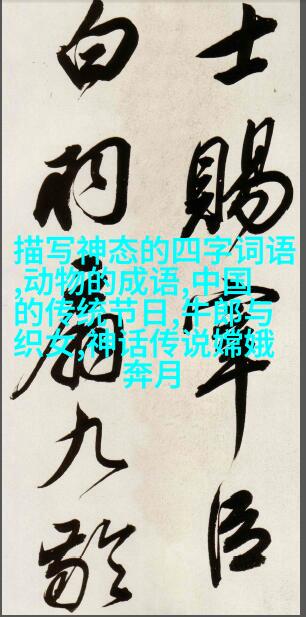 士賜宰臣
白羽扇九齡
描写神态的四字词语
,动物的成语,中国
的传统节日,牛郎与
织女,神话传说嫦娥
奔月